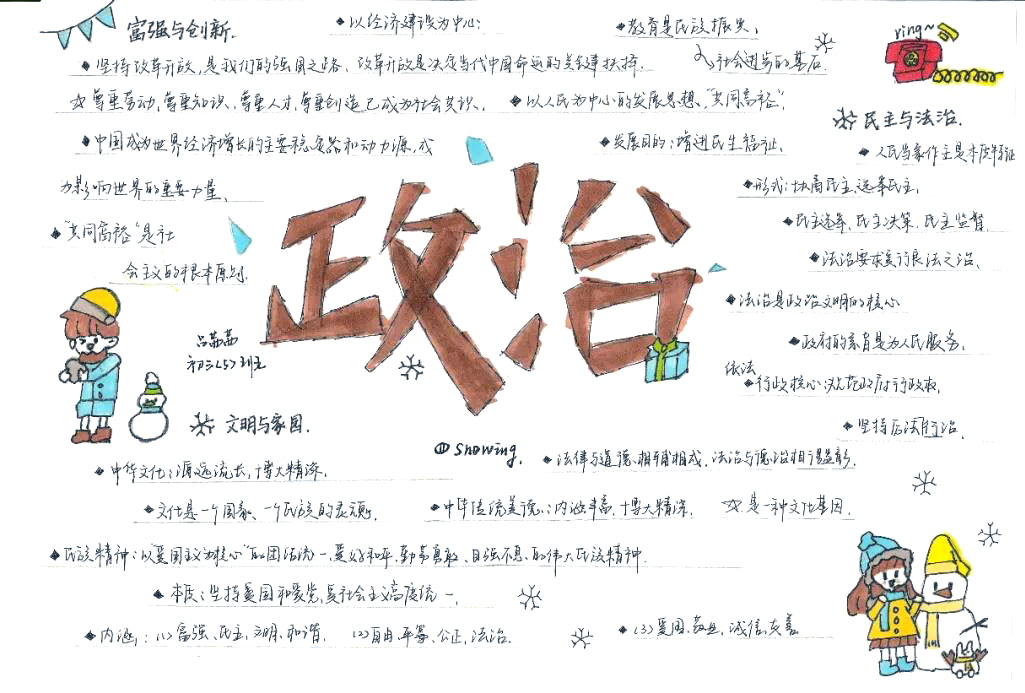 富强与创新.
以经济建设为中心;
教育是民族振兴、
社会进步的基石.
坚持改革开放,是我们的强国之路、改革开放是决定当代中国命运的关键抉择.
尊重劳动,尊重知识、尊重人才,尊重创造已成为社会共识、
以人民为中心的发展思想、"共同富裕".
中国成为世界经济增长的主要稳定器和动力源,成
为影响世界的重要力量、
发展目的:增进民生福祉、
"共同富裕"是社
会主义的根本原则.
ring~
民主与法治.
人民当家作主是本质特征
形式:协商民主、选举民主、
民主选举、民主决策、民主监督、
法治要求实行良法之治、
法治是政治文明的核心
政府的宗旨是为人民服务、
依法
行政核心:规范政府行政权、
坚持厉法行治、
政治
吕荔荔
初三(5)班
文明与家园.
snowing.
中华文化:源远流长,博大精深、
法律与道德、相辅相成、法治与德治相得益彰、
文化是一个国家、一个民族的灵魂、
中华传统美德:内涵丰富,博大精深、
是一种文化基因.
民族精神:以"爱国主义为核心"的团结统一、爱好和平、勤劳勇敢、自强不息、的伟大民族精神.
本质:坚持爱国和爱党,与社会主义高度统一、
内涵:(1)富强、民主,文明、和谐、
(2)自由、平等,公正,法治、
(3)爱国、敬业,诚信、友善